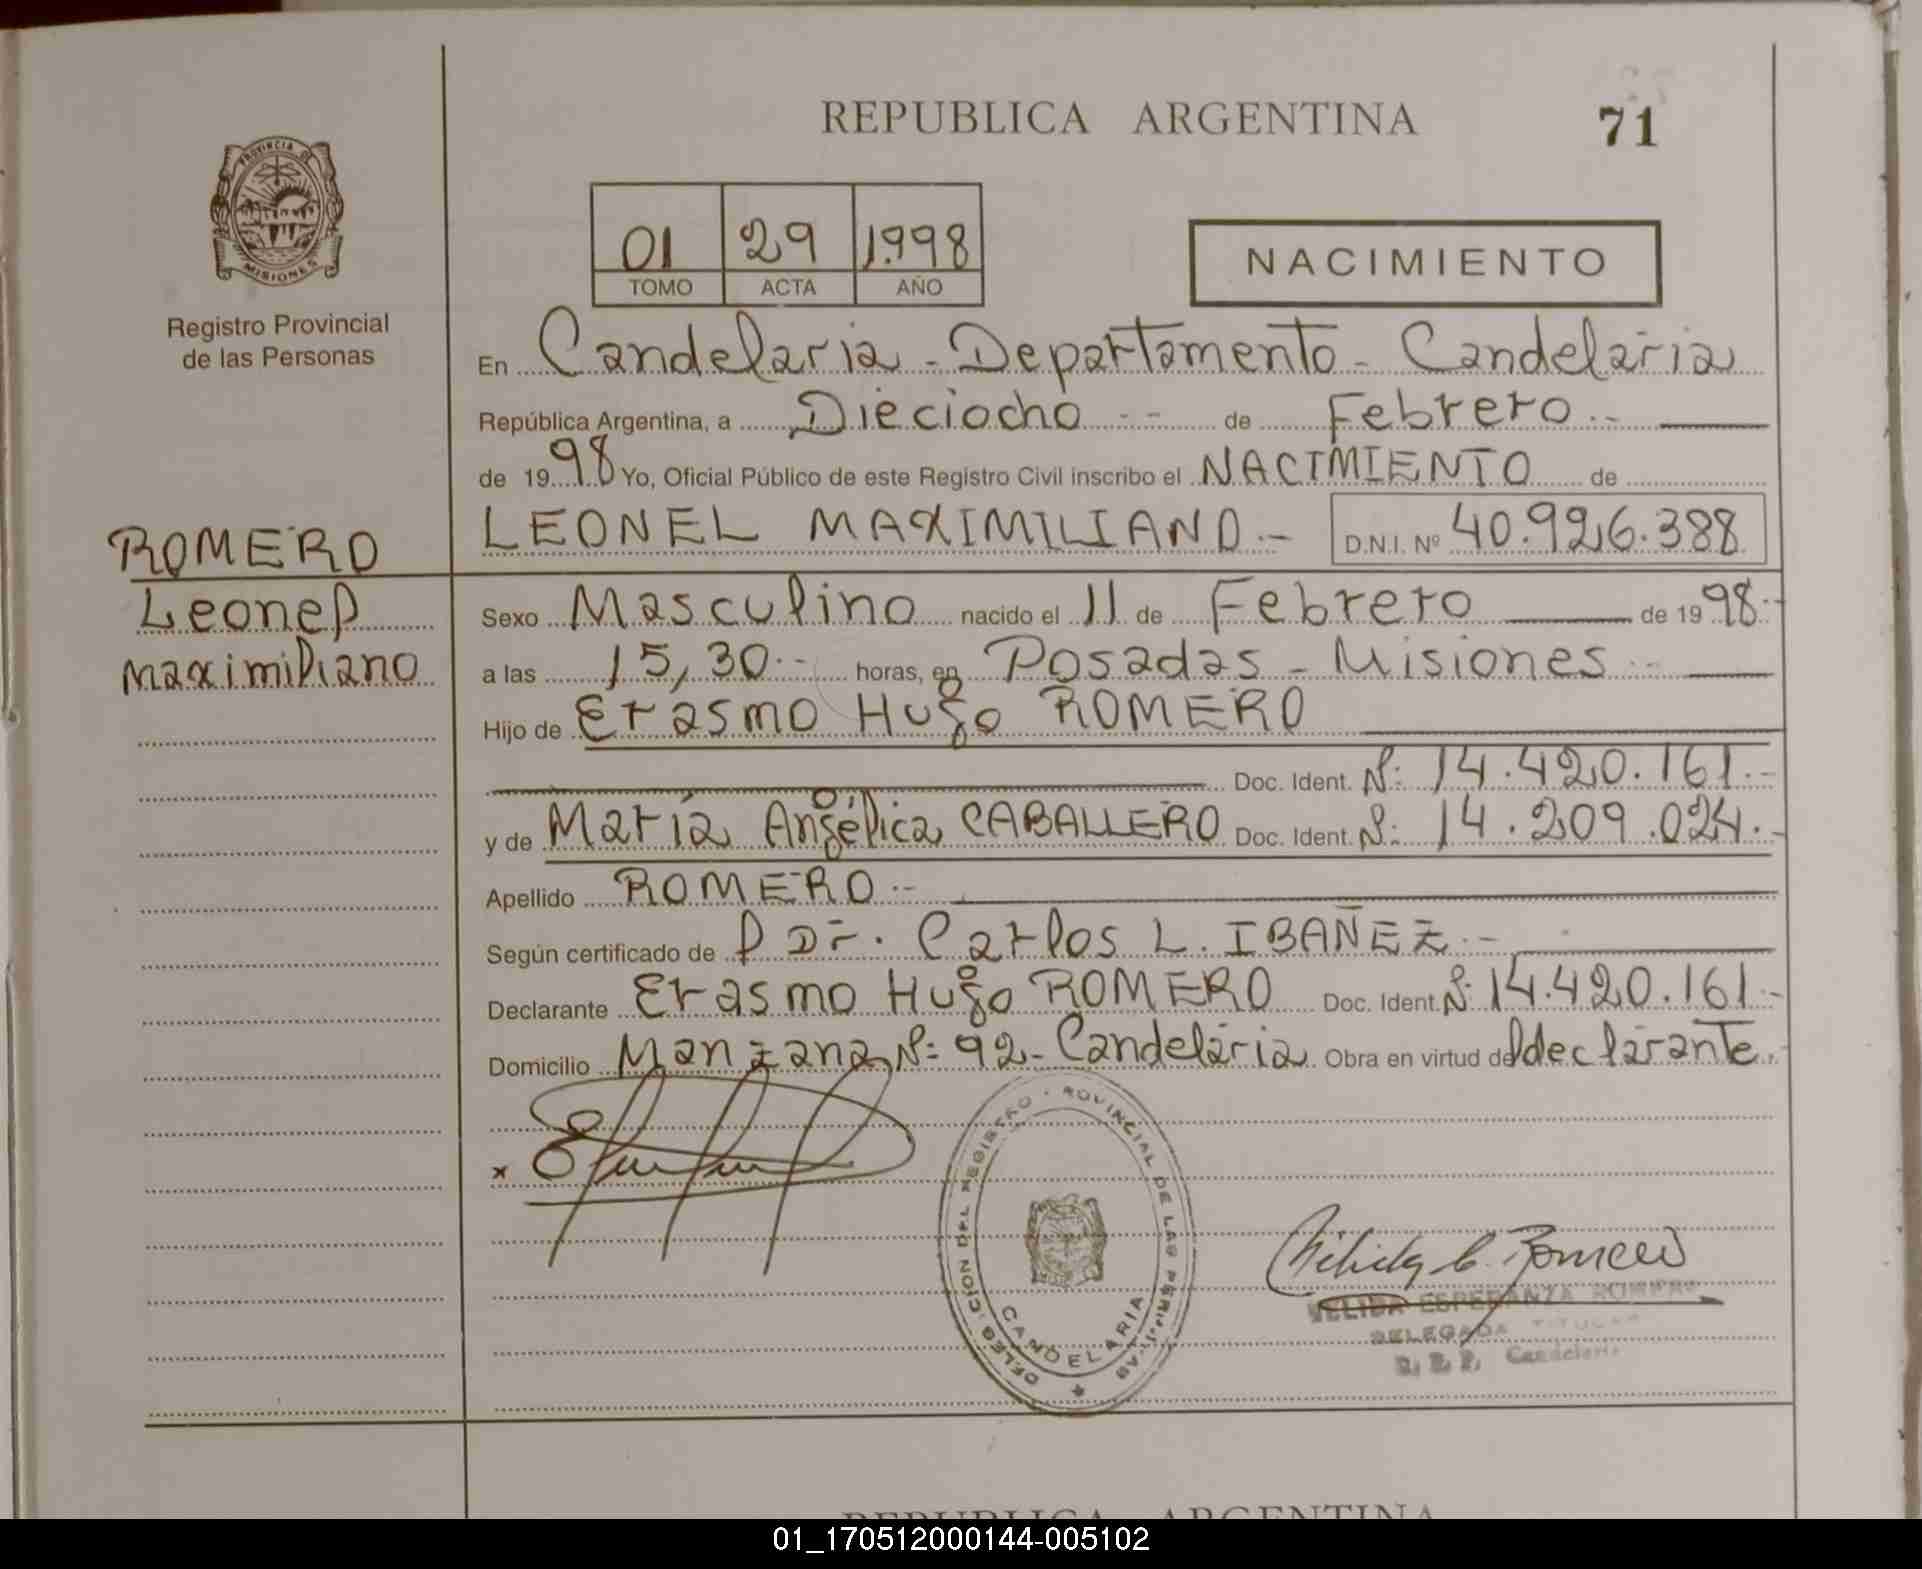 REPUBLICA ARGENTINA
71
PROVINCIA DE
MISIONES
Registro Provincial
de las Personas
01 29 1.998
TOMO ACTA AÑO
NACIMIENTO
En Candelaria - Departamento - Candelaria
República Argentina, a Dieciocho -- de Febrero.-
de 19 98 Yo, Oficial Público de este Registro Civil inscribo el NACIMIENTO de
LEONEL MAXIMILIANO.- D.N.I. Nº 40.926.388
ROMERO
Leonel
Maximiliano
Sexo Masculino nacido el 11 de Febrero de 19 98.-
a las 15,30.- horas, en Posadas - Misiones.-
Hijo de Erasmo Hugo ROMERO
Doc. Ident. Nº: 14.420.161.-
y de María Angélica CABALLERO Doc. Ident. Nº: 14.209.024.-
Apellido ROMERO.-
Según certificado de l Dr. Carlos L. IBAÑEZ.-
Declarante Erasmo Hugo ROMERO Doc. Ident. Nº: 14.420.161.-
Domicilio Manzana Nº: 92 - Candelaria Obra en virtud del declarante.
x
DELEGACION DEL REGISTRO PROVINCIAL DE LAS PERSONAS
CANDELARIA
ESPERANZA ROMERO
DELEGADA TITULAR
Candelaria
REPUBLICA ARGENTINA
01_170512000144-005102